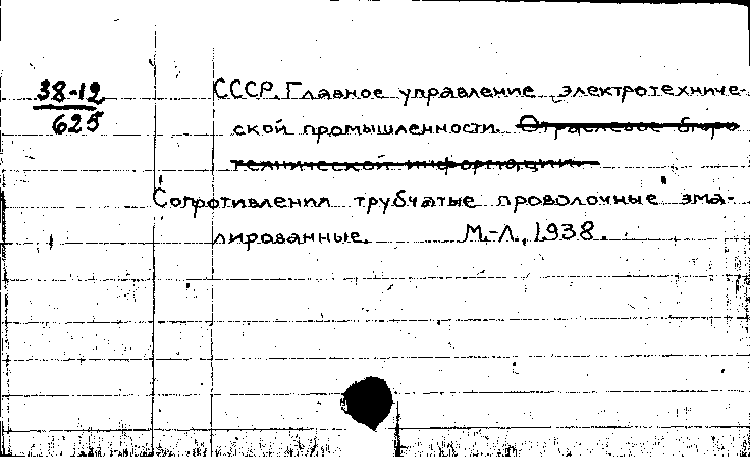 38-12
625
СССР. Главное управление электротехниче-
ской промышленности. Отраслевое бюро
технической информации.
Сопротивления трубчатые проволочные эма-
лированные. М.-Л., 1938.